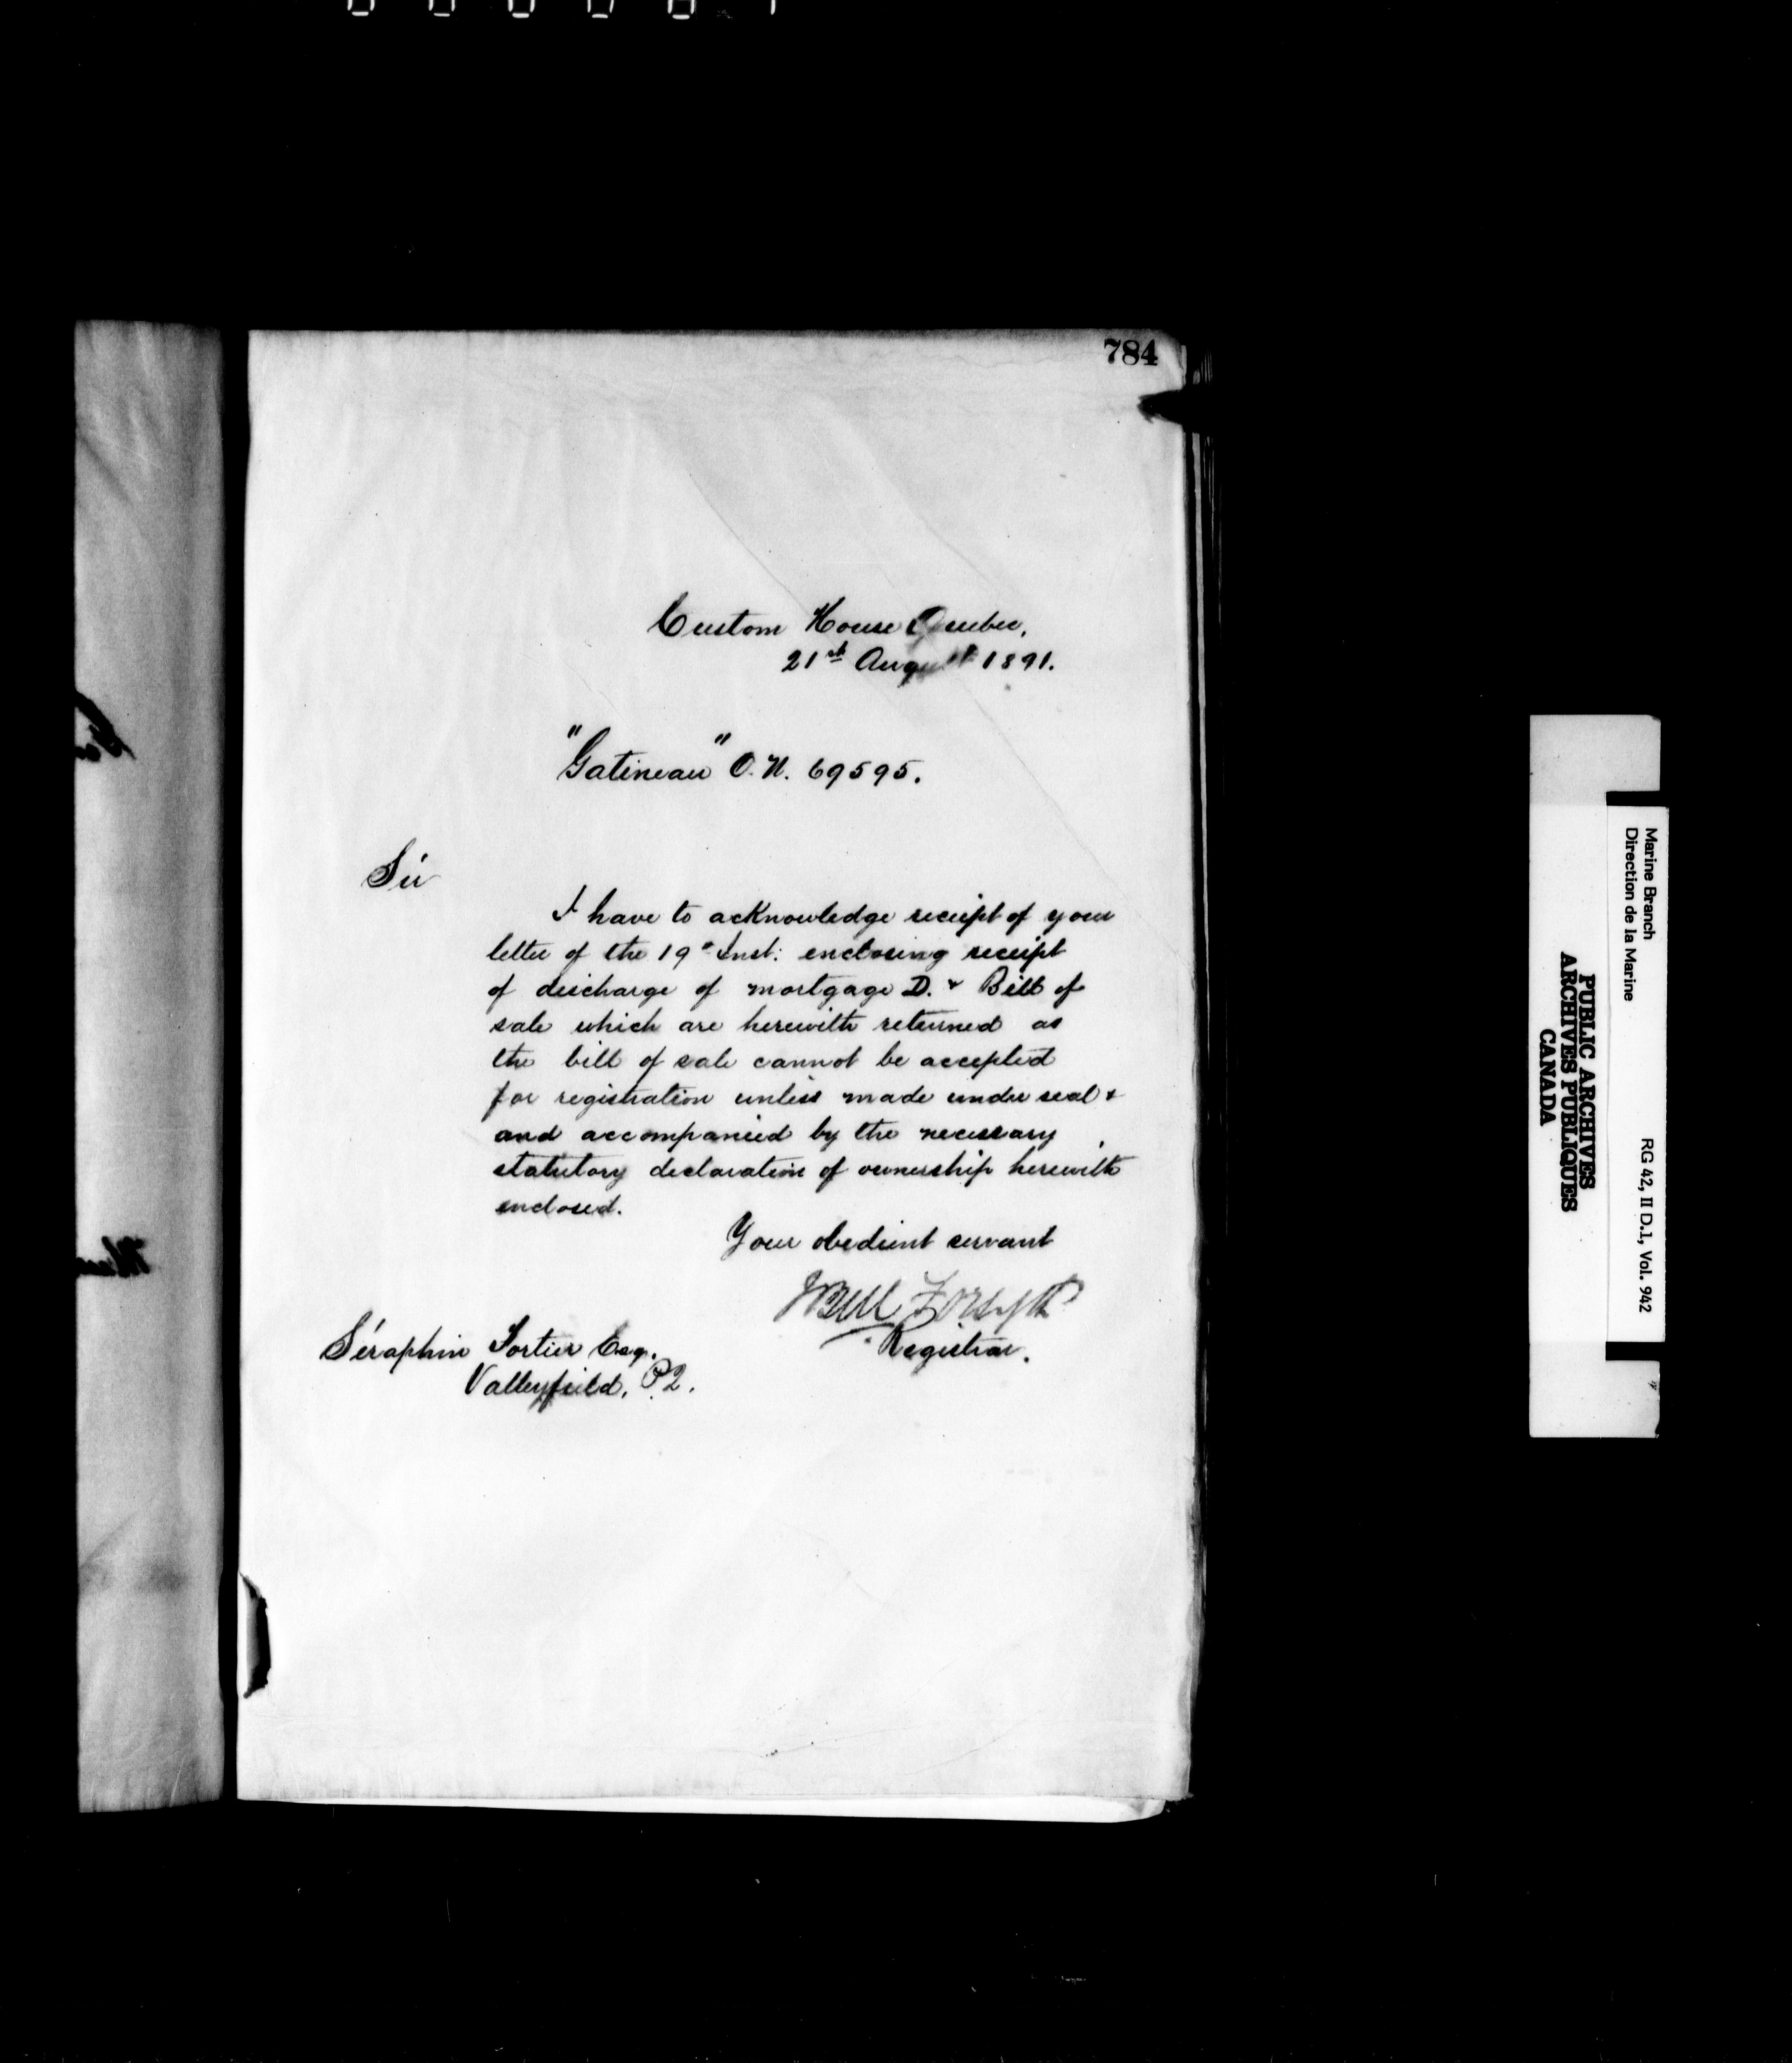 784
Custom House Quebec,
21st August 1891.
"Gatineau" O.N. 69595.
Sir
I have to acknowledge receipt of your
letter of the 19th Inst: enclosing receipt
of discharge of mortgage D. & Bill of
sale which are herewith returned as
the bill of sale cannot be accepted
for registration unless made under seal &
and accompanied by the necessary
statutory declaration of ownership herewith
enclosed.
Your obedient servant
J Bell Forsyth
Registrar.
Séraphin Fortier Esq.
Valleyfield, P.Q.
Marine Branch
Direction de la Marine
RG 42, II D.1, Vol. 942
PUBLIC ARCHIVES
ARCHIVES PUBLIQUES
CANADA